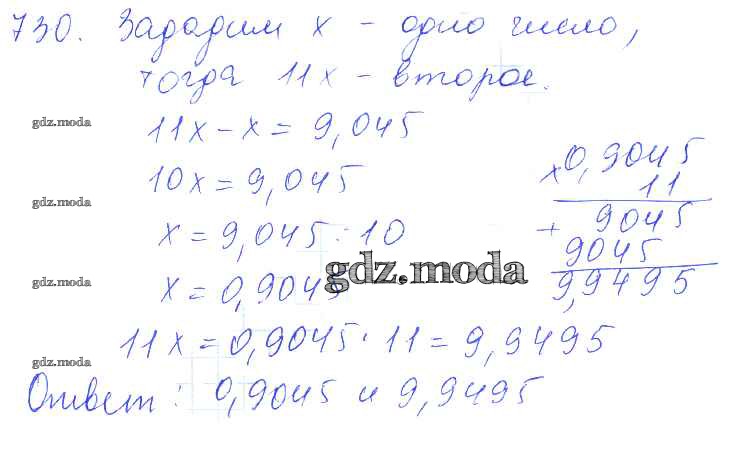 730. Зададим x - одно число,
тогда 11x - второе.
gdz.moda
11x - x = 9,045
10x = 9,045
gdz.moda
x = 9,045 : 10
gdz.moda
x = 0,9045
gdz.moda
11x = 0,9045 · 11 = 9,9495
gdz.moda
Ответ: 0,9045 и 9,9495
x 0,9045
11
+ 9045
9045
9,9495